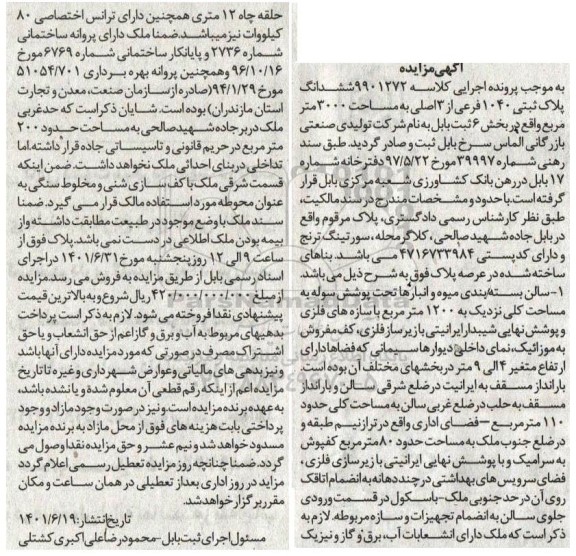 آگهی مزایده
به موجب پرونده اجرایی کلاسه ۹۹۰۱۲۷۲ ششدانگ
پلاک ثبتی ۱۰۴۰ فرعی از ۱۳ اصلی به مساحت ۳۰۰۰ متر
مربع واقع در بخش ۶ ثبت بابل به نام شرکت تولیدی صنعتی
بازرگانی الماس سرخ بابل ثبت و صادر گردید. طبق سند
رهنی شماره ۳۹۹۹۷ مورخ ۹۷/۵/۲۲ دفترخانه شماره
۱۷ بابل در رهن بانک کشاورزی شعبه مرکزی بابل قرار
گرفته است. با حدود و مشخصات مندرج در سند مالکیت،
طبق نظر کارشناس رسمی دادگستری، پلاک مرقوم واقع
در بابل جاده شهید صالحی، کلاگر محله، سورتینگ ترنج
و دارای کدپستی ۴۷۱۶۷۳۳۹۸۴ می باشد. بناهای
ساخته شده در عرصه پلاک فوق به شرح ذیل می باشد.
۱- سالن بسته‌بندی میوه و انبارها تحت پوشش سوله به
مساحت کلی نزدیک به ۱۲۰۰ متر مربع با سازه های فلزی
و پوشش نهایی شیبدار ایرانیتی با زیرساز فلزی، کف مفروش
به موزائیک، نمای داخلی دیوارها سیمانی که فضاها دارای
ارتفاع متغیر ۴ الی ۹ متر در بخشهای مختلف آن بوده است
بارانداز مسقف به ایرانیت در ضلع شرقی سالن و بارانداز
مسقف به حلب در ضلع غربی سالن به مساحت کلی حدود
۱۱۰ متر مربع – فضای اداری واقع در تراز نیم طبقه و
در ضلع جنوب ملک به مساحت حدود ۸۰ متر مربع کفپوش
به سرامیک و با پوشش نهایی ایرانیتی با زیرسازی فلزی،
فضای سرویس های بهداشتی در چند دهانه به انضمام اتاقک
روی آن در حد جنوبی ملک- باسکول در قسمت ورودی
جلوی سالن به انضمام تجهیزات و سازه مربوطه. لازم به
ذکر است که ملک دارای انشعابات آب، برق و گاز و نیز یک
حلقه چاه ۱۲ متری همچنین دارای ترانس اختصاصی ۸۰
کیلووات نیز میباشد. ضمنا ملک دارای پروانه ساختمانی
شماره ۲۷۳۶ و پایانکار ساختمانی شماره ۶۷۶۹ مورخ
۹۶/۱۰/۱۶ وهمچنین پروانه بهره برداری ۵۱۰۵۴/۷۰۱
مورخ ۹۴/۱/۲۹ (صادره از سازمان صنعت، معدن و تجارت
استان مازندران) بوده است. شایان ذکر است که حد غربی
ملک در بر جاده شهید صالحی به مساحت حدود ۲۰۰
متر مربع در حریم قانونی و تاسیساتی جاده قرار داشته، اما
تداخلی در بنای احداثی ملک نخواهد داشت. ضمن اینکه
قسمت شرقی ملک با کف سازی شنی و مخلوط سنگی به
عنوان محوطه مورد استفاده مالک قرار می گیرد. ضمنا
سند ملک با وضع موجود در طبیعت مطابقت داشته و از
بیمه بودن ملک اطلاعی در دست نمی باشد. پلاک فوق از
ساعت ۹ الی ۱۲ روز پنجشنبه مورخ ۱۴۰۱/۶/۳۱ در اجرای
اسناد رسمی بابل از طریق مزایده به فروش می رسد. مزایده
از مبلغ ریال شروع و به بالاترین قیمت
پیشنهادی نقدا فروخته می شود. لازم به ذکر است پرداخت
بدهیهای مربوط به آب و برق و گاز اعم از حق انشعاب و یا حق
اشتراک مصرف در صورتی که مورد مزایده دارای آنها باشد
و نیز بدهی های مالیاتی و عوارض شهرداری و غیره تا تاریخ
مزایده اعم از اینکه رقم قطعی آن معلوم شده و یا نشده باشد،
به عهده برنده مزایده است. و نیز در صورت وجود مازاد وجوه
پرداختی بابت هزینه های فوق از محل مازاد به برنده مزایده
مسترد خواهد شد و نیم عشر و حق مزایده نقدا وصول می
گردد. ضمنا چنانچه روز مزایده تعطیل رسمی اعلام گردد
مزایده در روز اداری بعد از تعطیلی در همان ساعت و مکان
مقرر برگزار خواهد شد.
تاریخ انتشار: ۱۴۰۱/۶/۱۹
مسئول اجرای ثبت بابل- محمودرضا علی اکبری کشتلی